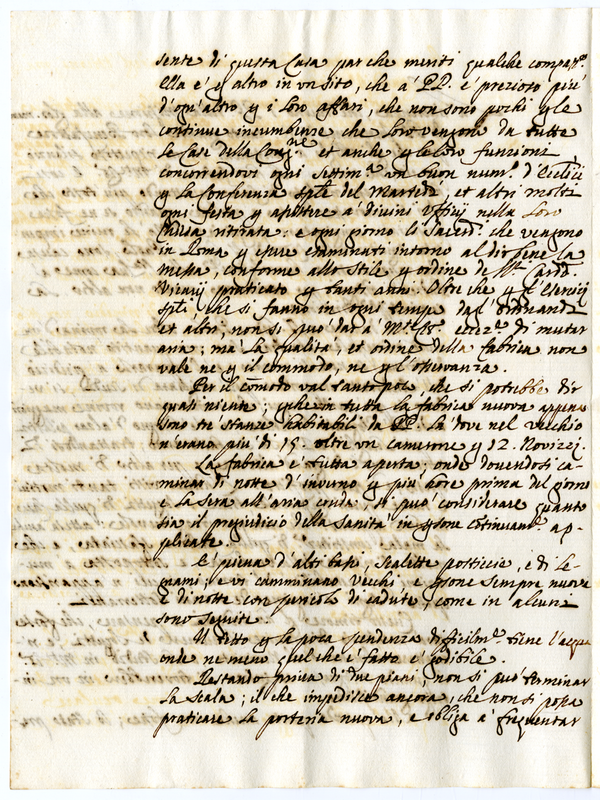 sente di questa Casa par che meriti qualche compat.ne
Ella è q altro in un sito, che a' PP. è prezioso più
d'ogn'altro q i loro affari, che non sono pochi q le
continue incumbenze che loro vengono da tutte
le Case della Cong.ne et anche q le loro funzioni
concorrendovi ogni settim.a un buon num.o d'Eccl.ci
q la Conferenza sp.le del Martedì, et altri molti
ogni festa q assistere a' divini Uffitij nella loro
ritirata: e ogni giorno li Sacerd.i che vengono
in Roma q essere esaminati intorno al dir bene la
messa, conforme allo stile q ordine de SS.ri Card.
Vicarij praticato q tanti anni. Oltre che q l'Esercitij
sp.li, che si fanno in ogni tempo dagl'Ordinandi
et altri, non si può dar a' di mutar
aria; mà la qualità, et ordine della fabrica non
vale ne q il commodo, ne q l'osservanza.
Per il comodo val tanto poco, che si potrebbe dir
quasi niente; q che in tutta la fabrica nuova appena
sono tre stanze habitabili da PP. là dove nel vecchio
n'erano più di 15. oltre un camerone q 12. Novizzi.
La fabrica è tutta aperta; onde dovendosi ca-
minar di notte d'inverno q più hore prima del giorno
e la sera all'aria cruda, si può considerare quanto
sia il pregiudicio della sanità in q sone continuam.e ap-
plicate.
E' piena d'alti bassi, scalette posticcie, e di le-
gnami; e vi camminano vecchi e q sone sempre nuove
e di notte con pericolo di cadute, come in alcuni
sono seguite.
Il tetto q la poca pendenza difficilm.e tiene l'acqua
onde ne meno quel che è fatto è godibile.
Restando priva di due piani, non si può terminar
la scala; il che impedisce ancora, che non si possa
praticare la porteria nuova, e obliga a' frequentar